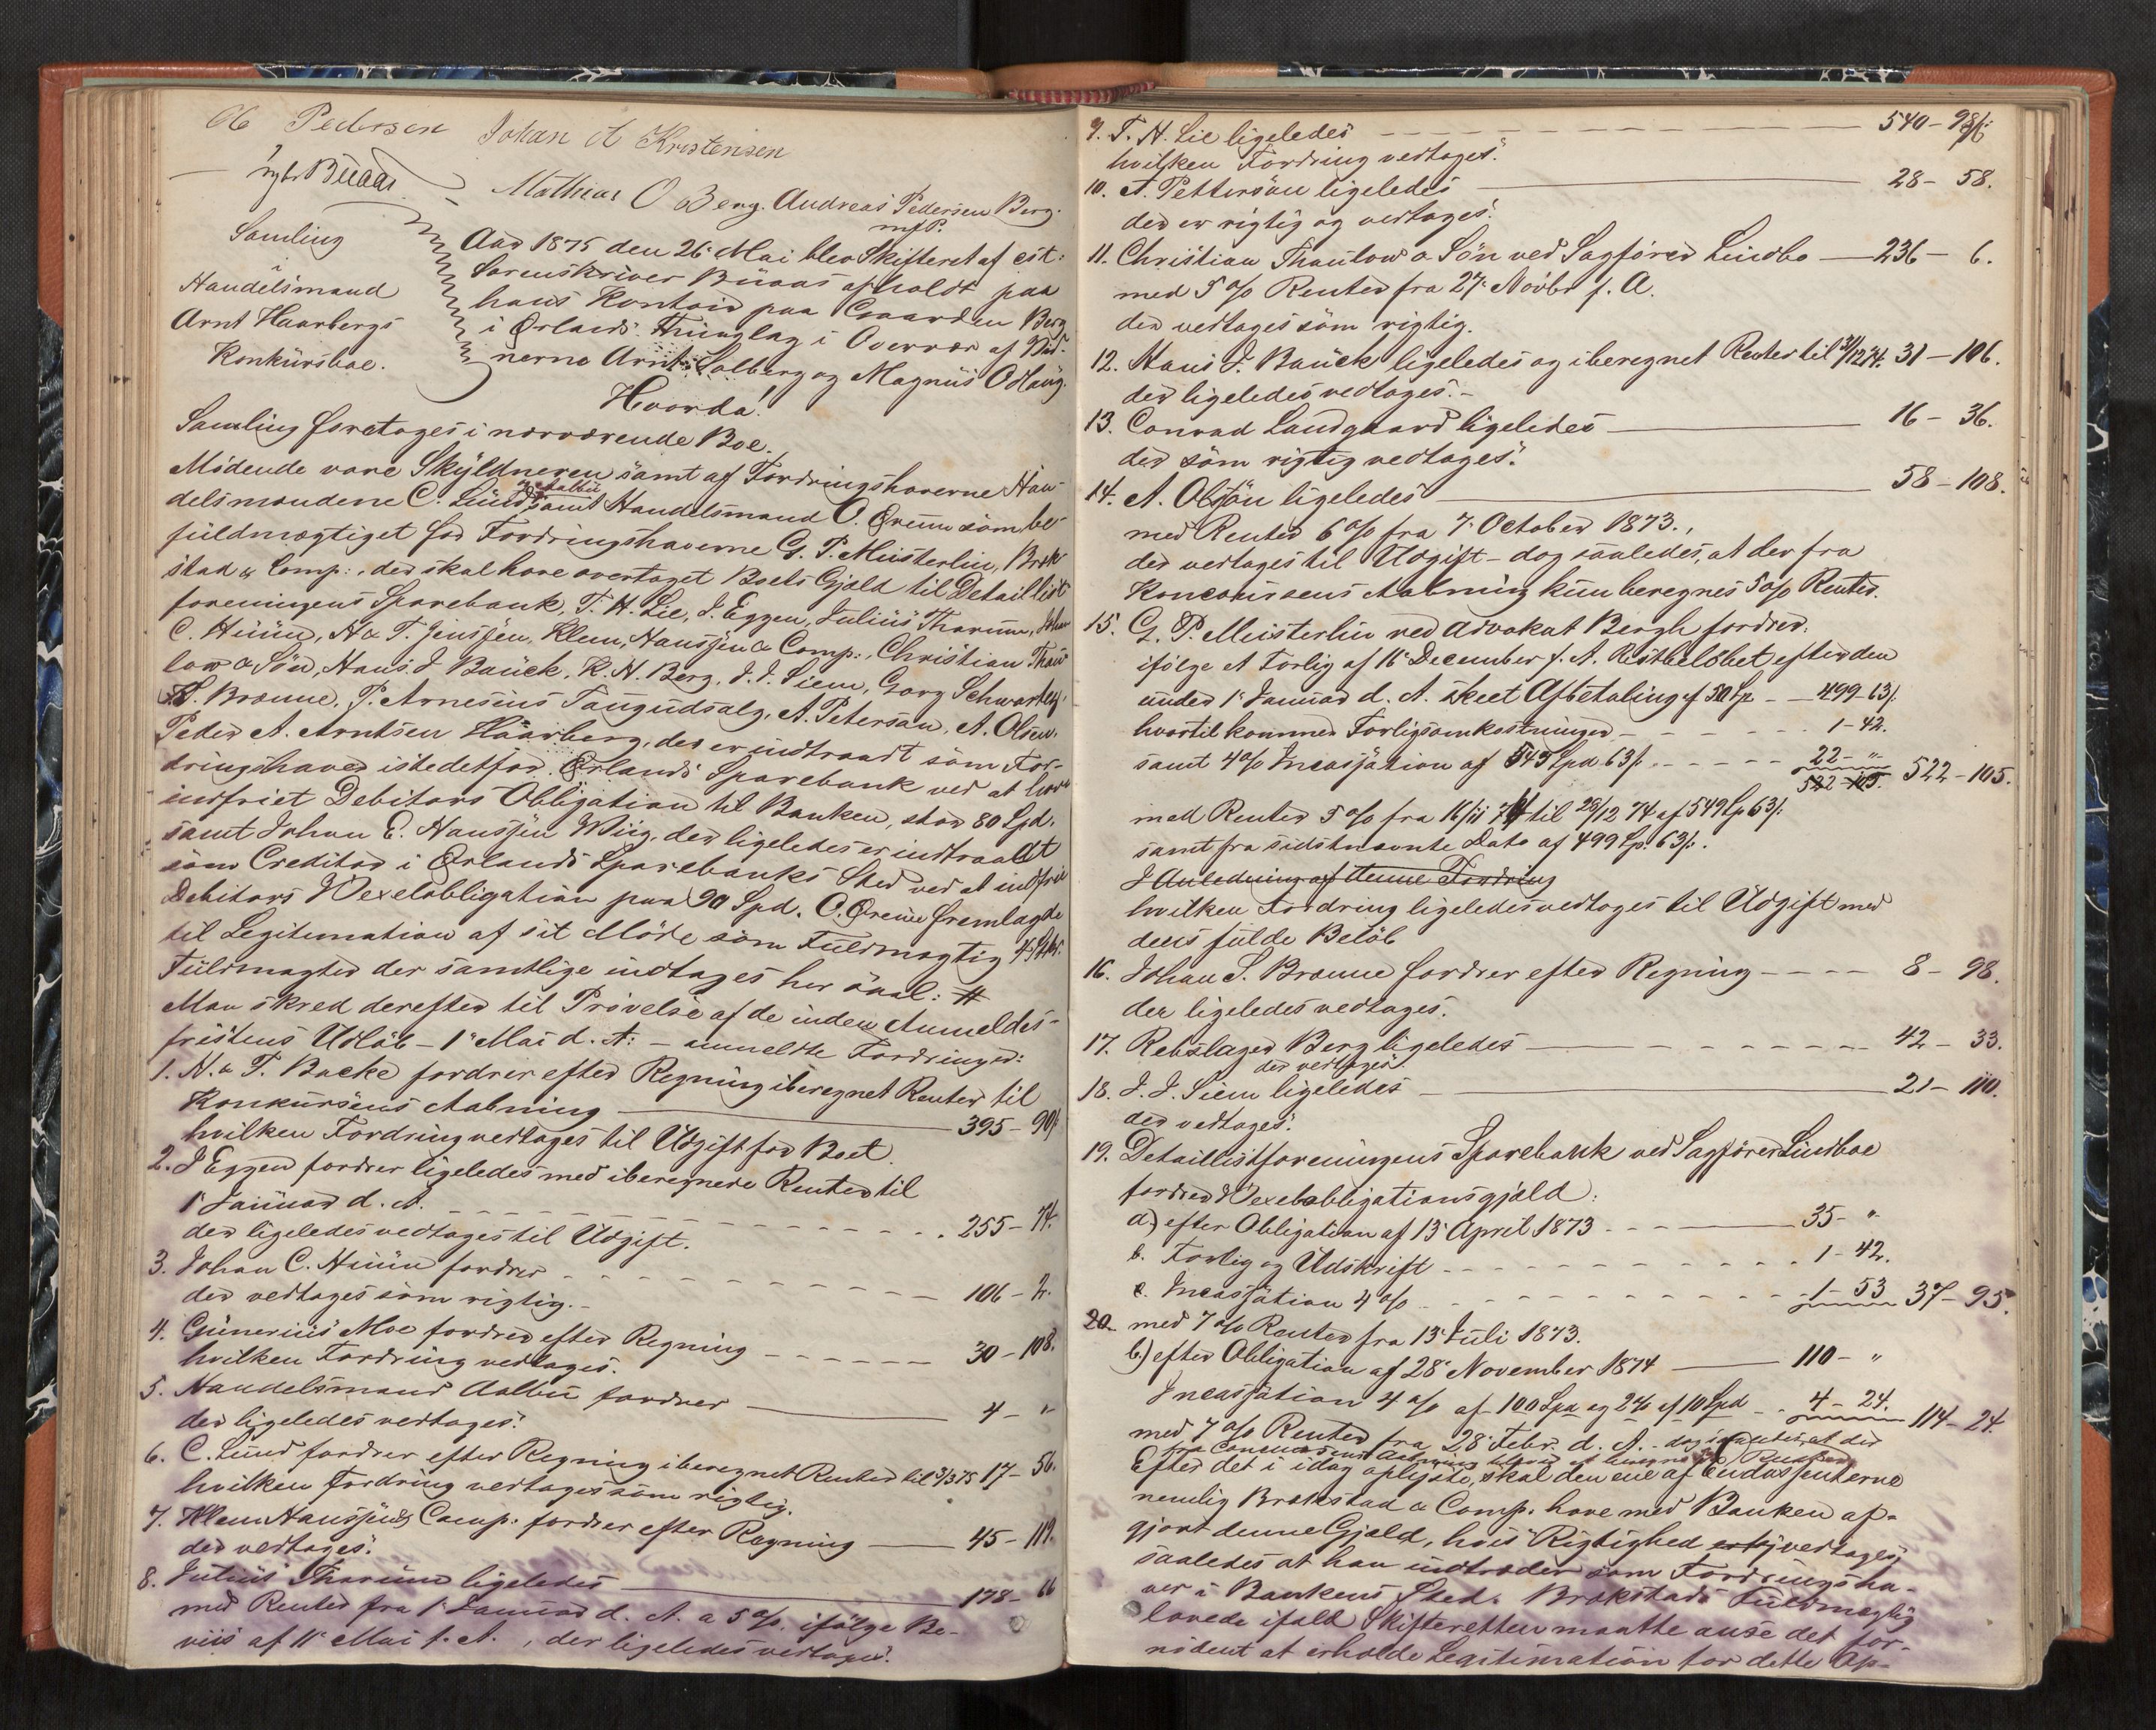 Ol Pedersen Johan A Kristensen
Büaas
Mathias O Berg. Andreas Pedersen Berg.
m f P.
Samling
i
Handelsmand
Arnt Haarbergs
Konkürsboe.
Aar 1875 den 26' Mai blev Skifteret af cst:
Sorenskriver Büaas afholdt paa
hans Kontoir paa Gaarden Berg
i Ørlands Thinglag i Overvær af Vid-
nerne Arnt Solberg og Magnüs O Haüg.
Hvorda!
Samling foretages i nærværende Boe.
Mødende vare Skyldneren samt af Fordringshaverne Han-
delsmændene C. Lünd og Aalbü samt Handelsmand O. Ørenn som be-
füldmægtiget for Fordringshaverne G. P. Meisterlin, Brek-
stad & Comp:, der skal have overtaget Boets Gjæld til Detaillist
foreningens Sparebank, T. H. Lie, J. Eggen, Julius Tharum, Johan
C. Hüün, N & T. Jenssen, Klem, Hanssen & Comp:, Christian Thau
low & Søn, Hans J Baück, K. H. Berg, J. J. Siem, Georg Schwartz,
S. Brænne, P. Arnesens Taugudsalg, A. Petersen, A. Olsen,
Peder A. Arntsen Haarberg, der er indtraadt som For-
dringshaver istedetfor Ørlands Sparebank ved at have
indfriet Debitors Obligation til Banken, stor 80 Spd.
samt Johan E. Hanssen Wiig, der ligeledes er indtraadt
som Creditor i Ørlands Sparebanks Sted ved at indfrie
Debitors Vexelobligation paa 90 Spd. O. Ørenn fremlagde
til Legitimation af sit Møde som Fuldmægtig 4 Stkr.
Fuldmagter der samtlige indtages her saal: #
Man skred derefter til Prøvelse af de inden Anmeldes-
fristens Udløb – 1' Mai d. A: – anmeldte Fordringer:
1. N. & T. Backe fordrer efter Regning iberegnet Renter til
Konkürsens Aabning 395 – 90 ß
hvilken Fordring vedtages til Udgift for Boet.
2. J Eggen fordrer ligeledes med iberegnede Renter til
1' Januar d. A. 255 – 74.
der ligeledes vedtages til Udgift.
3. Johan C. Hüün fordrer 106 – 2.
der vedtages som rigtig. –
4. Günerius Moe fordrer efter Regning 30 – 108.
hvilken Fordring vedtages.
5. Handelsmand Aalbü fordrer 4 – "
der ligeledes vedtages.
6. C. Lünd fordrer efter Regning iberegnet Renter til 3/3 75 17 – 56.
hvilken Fordring vedtages som rigtig.
7. Klem Hanssen & Comp: fordrer efter Regning 45 – 119.
der vedtages.
8. Julius Tharum ligeledes 178 – 66
med Renter fra 1' Januar d. A. a 5 %, ifølge Be-
viis af 11' Mai f. A., der ligeledes vedtages.
9. T. H. Lie ligeledes 540 – 98 ß:
hvilken Fordring vedtages.
10. A. Pettersen ligeledes 28 – 58.
der er rigtig og vedtages.
11. Christian Thaulow & Søn ved Sagfører Lindbo 236 – 6.
med 5 % Renter fra 27' Novbr f. A.
der vedtages som rigtig.
12. Hans J. Baück ligeledes og iberegnet Renter til 31/12 74. 31 – 106.
der ligeledes vedtages. –
13. Conrad Landgraard ligeledes 16 – 36.
der som rigtig vedtages.
14. A. Olsen ligeledes 58 – 108.
med Renter 6 % fra 7' October 1873.,
der vedtages til Udgift – dog saaledes, at der fra
Koncoursens Aabning kün beregnes 5 % Renter.
15. G. P. Meisterlin ved Advokat Bergh fordrer
ifølge et Forlig af 16' December f. A. Restbeløbet efter den
under 1' Januar d. A. skeet Afbetaling af 50 Sp 499 – 63 ß.
hvortil kommer Forligsomkostninger 1 – 42.
samt 4 % Incassation af 549 Spd 63 ß 22 – "
522 – 105. 522 – 105.
med Renter 5 % fra 16/11 74 til 28/12 74 af 549 Sp 63 ß:
samt fra sidstnævnte Dato af 499 Sp. 63 ß.
I Anledning af denne Fordring
hvilken Fordring ligeledes vedtages til Udgift med
dens fulde Beløb
16. Johan S. Brænne fordrer efter Regning 8 – 98.
der ligeledes vedtages.
17. Rebslager Berg ligeledes 42 – 33.
der vedtages.
18. J. J. Siem ligeledes 21 – 110.
der vedtages.
19. Detaillistforeningens Sparebank ved Sagfører Lindboe
fordrer Vexelobligationsgjæld:
a) efter Obligation af 13' April 1873 35 – "
b. Forlig og Udskrift 1 – 42.
c. Incassation 4 % 1 – 53 37 – 95.
20. med 7 % Renter fra 13' Juli 1873.
b) efter Obligation af 28' November 1874 110 – "
Incassation 4 % af 100 Spd og 2 % af 10 Spd 4 – 24. 114 – 24.
med 7 % Renter fra 28' Febr. d. A. – dog saaledes, at der
fra Concursens Aabning beregnes Renter
Efter det i idag oplyste, skal den ene af Endossenterne
nemlig Brekstad & Comp. have med Banken af-
gjort denne Gjæld, hvis Rigtighed vedtages
saaledes at han indtræder som Fordringsha-
ver i Bankens Sted. Brekstads Fuldmægtig
lovede ifald Skifteretten maatte anse det for-
nødent at erholde Legitimation for dette Op-